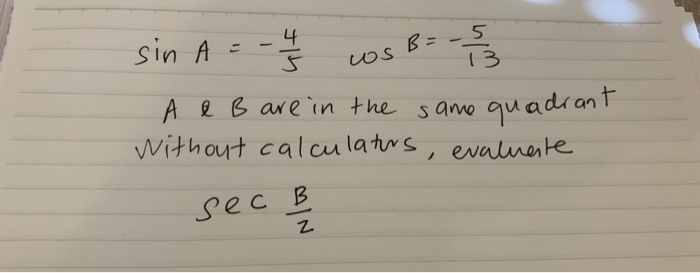 sin A = -4/5 cos B = -5/13
A & B are in the same quadrant
Without calculators, evaluate
sec B/2